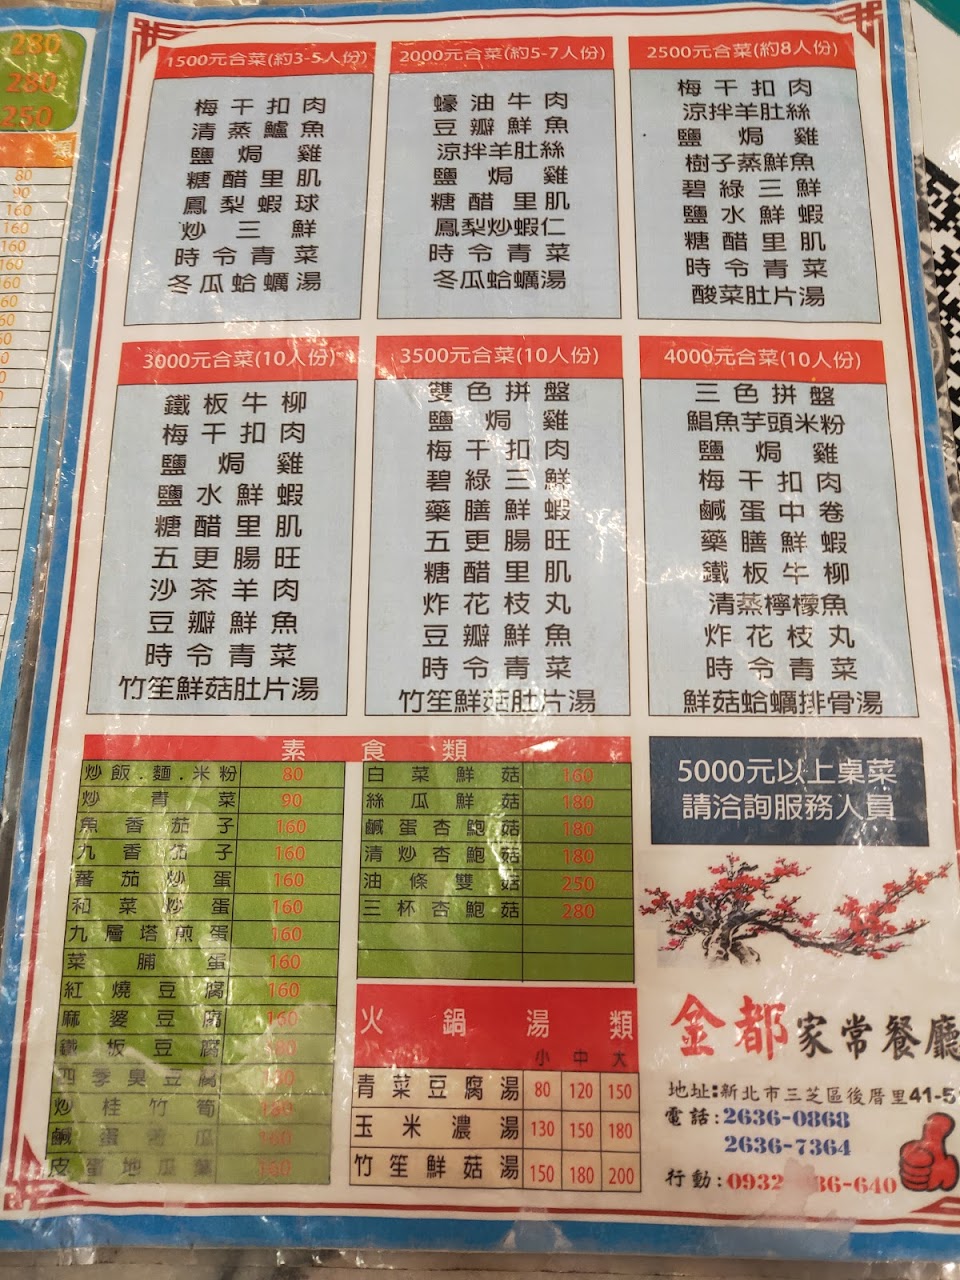 280
280
250
類
80
90
160
160
160
160
160
160
1500元合菜(約3-5人份)
梅干扣肉
清蒸鱸魚
鹽焗雞
糖醋里肌
鳳梨蝦球
炒三鮮
時令青菜
冬瓜蛤蠣湯
2000元合菜(約5-7人份)
蠔油牛肉
豆瓣鮮魚
涼拌羊肚絲
鹽焗雞
糖醋里肌
鳳梨炒蝦仁
時令青菜
冬瓜蛤蠣湯
2500元合菜(約8人份)
梅干扣肉
涼拌羊肚絲
鹽焗雞
樹子蒸鮮魚
碧綠三鮮
鹽水鮮蝦
糖醋里肌
時令青菜
酸菜肚片湯
3000元合菜(10人份)
鐵板牛柳
梅干扣肉
鹽焗雞
鹽水鮮蝦
糖醋里肌
五更腸旺
沙茶羊肉
豆瓣鮮魚
時令青菜
竹笙鮮菇肚片湯
3500元合菜(10人份)
雙色拼盤
鹽焗雞
梅干扣肉
碧綠三鮮
藥膳鮮蝦
五更腸旺
糖醋里肌
炸花枝丸
豆瓣鮮魚
時令青菜
竹笙鮮菇肚片湯
4000元合菜(10人份)
三色拼盤
鯧魚芋頭米粉
鹽焗雞
梅干扣肉
鹹蛋中卷
藥膳鮮蝦
鐵板牛柳
清蒸檸檬魚
炸花枝丸
時令青菜
鮮菇蛤蠣排骨湯
素食類
炒飯.麵.米粉 80
炒青菜 90
魚香茄子 160
九香茄子 160
蕃茄炒蛋 160
和菜炒蛋 160
九層塔煎蛋 160
菜脯蛋 160
紅燒豆腐 160
麻婆豆腐 160
鐵板豆腐
四季臭豆腐
炒桂竹筍
鹹蛋苦瓜 160
皮蛋地瓜葉 160
白菜鮮菇 160
絲瓜鮮菇 180
鹹蛋杏鮑菇 180
清炒杏鮑菇 180
油條雙菇 250
三杯杏鮑菇 280
火鍋湯類
小 中 大
青菜豆腐湯 80 120 150
玉米濃湯 130 150 180
竹笙鮮菇湯 150 180 200
5000元以上桌菜
請洽詢服務人員
金都家常餐廳
地址:新北市三芝區後厝里41-5
電話:2636-0868
2636-7364
行動:0932 36-640